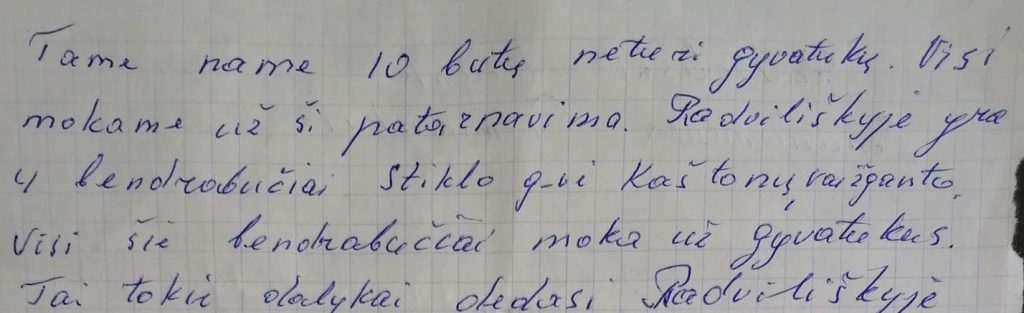 Tame name 10 butų neturi gyvatukų. Visi
mokame už ši patarnavima. Radviliškyje yra
4 bendrabučiai Stiklo g-vi Kaštonų, vaižganto.
Visi šie bendrabučiai moka už gyvatukus.
Tai tokie dalykai dedasi Radviliškyje